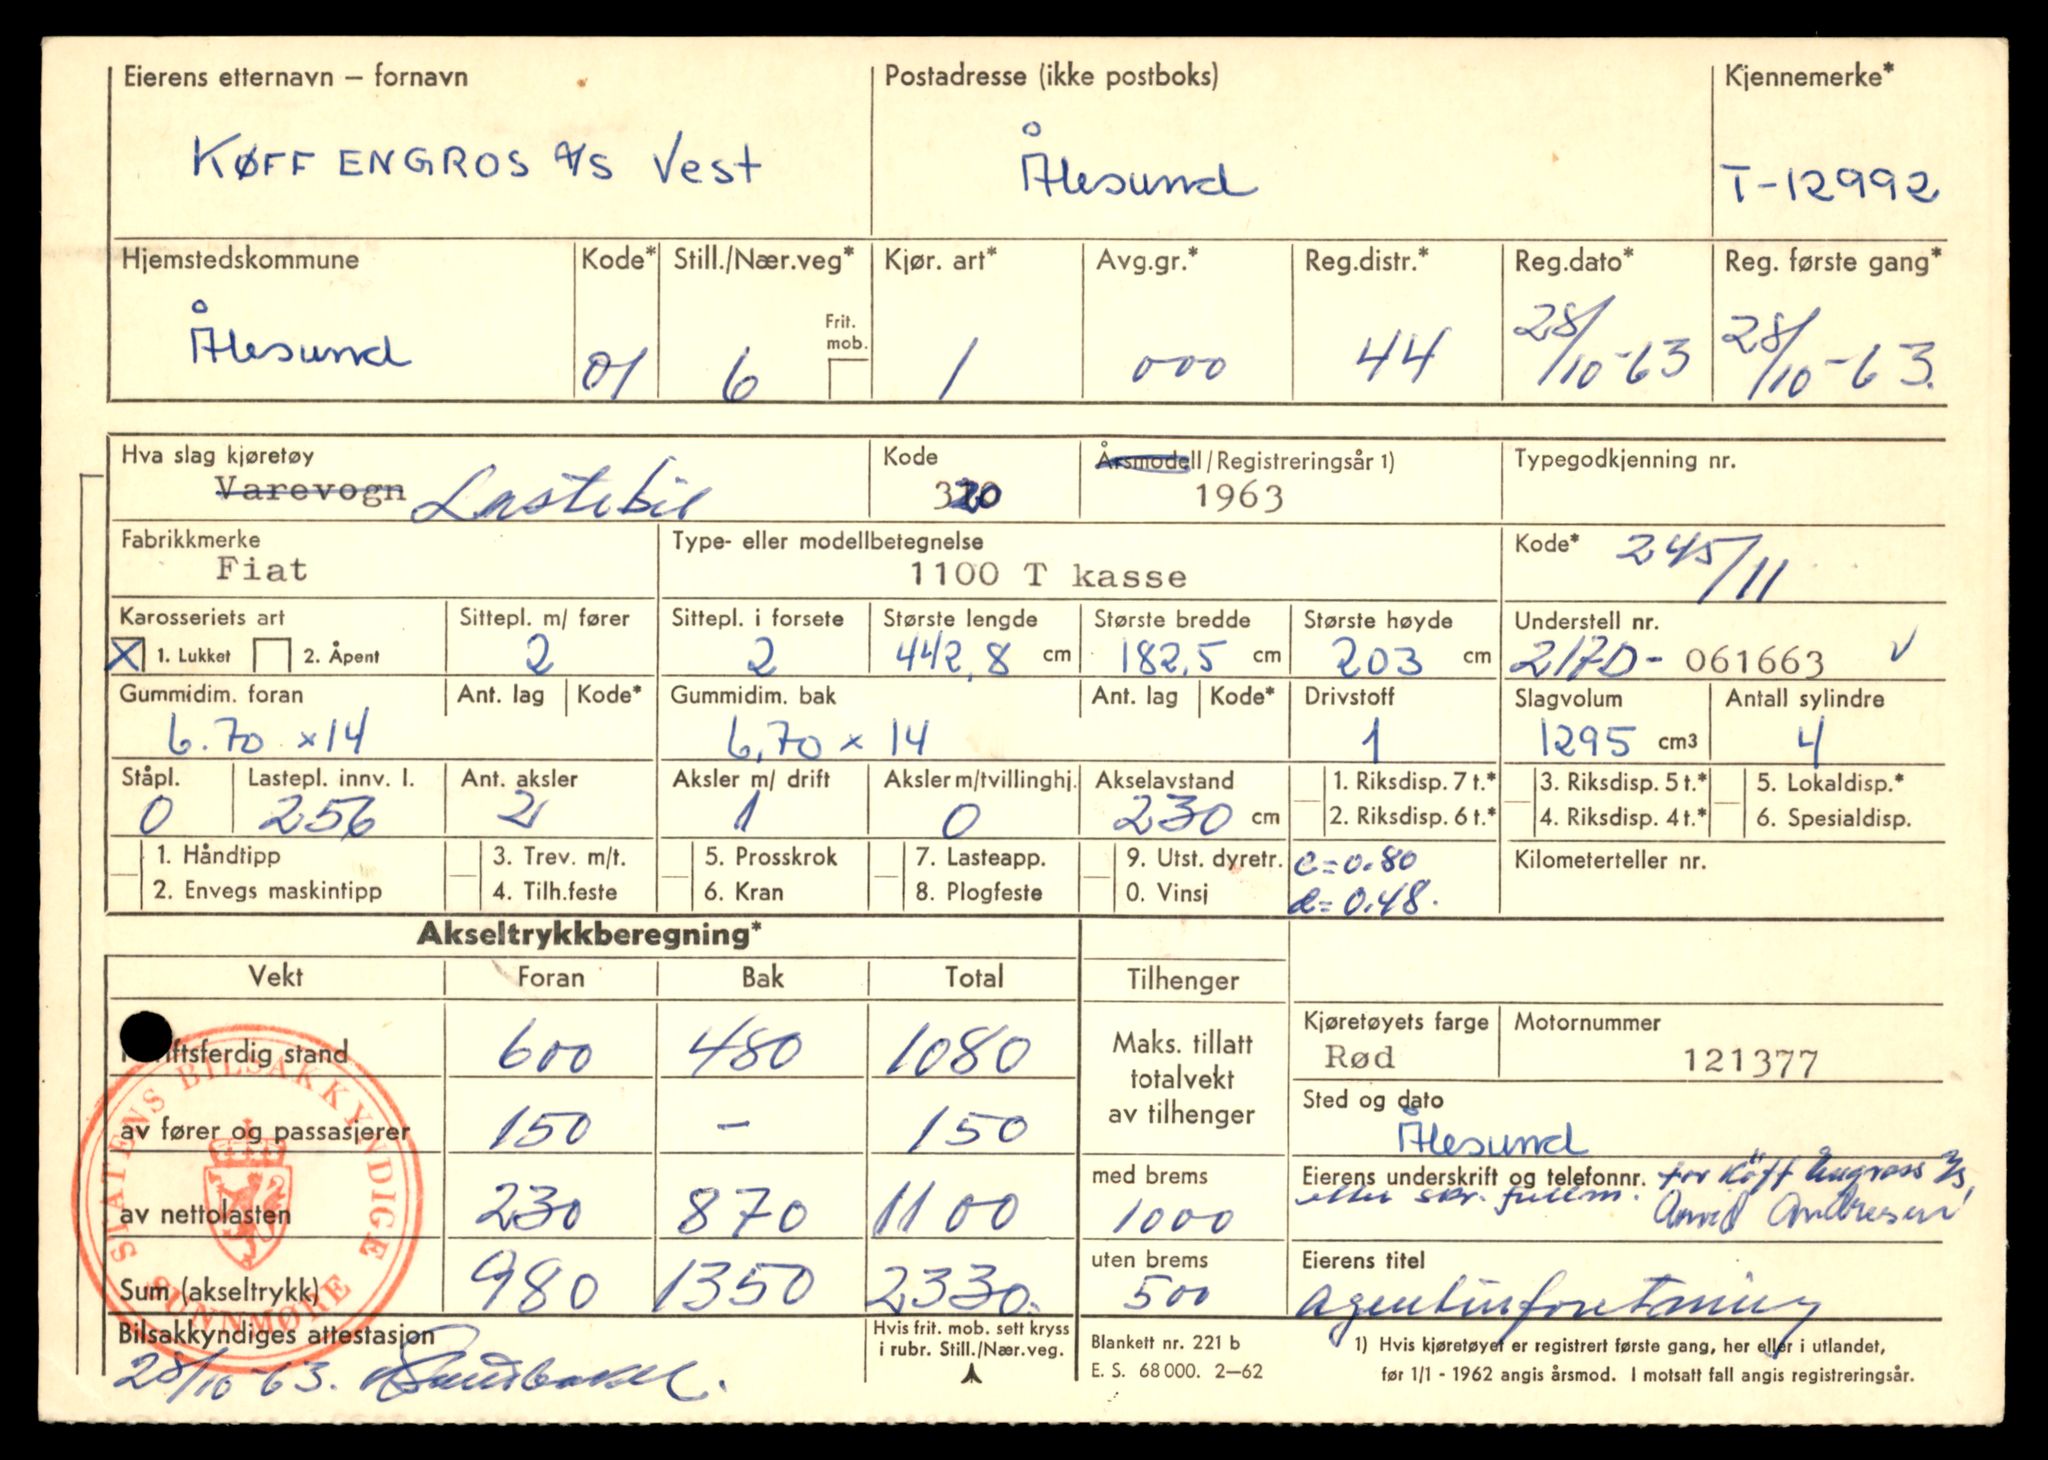 Eierens etternavn – fornavn Postadresse (ikke postboks) Kjennemerke*
KØFF ENGROS A/S Vest Ålesund T-12992
Hjemstedskommune Kode* Still./Nær.veg* Kjør. art* Avg.gr.* Reg.distr.* Reg.dato* Reg. første gang*
Frit. mob.
Ålesund 01 6 1 000 44 28/10-63 28/10-63.
Hva slag kjøretøy Kode Årsmodell/Registreringsår 1) Typegodkjenning nr.
Varevogn Lastebil 320 1963
Fabrikkmerke Type- eller modellbetegnelse Kode* 245/11
Fiat 1100 T kasse
Karosseriets art Sittepl. m/ fører Sittepl. i forsete Største lengde Største bredde Største høyde Understell nr.
X 1. Lukket 2. Åpent 2 2 442,8 cm 182,5 cm 203 cm 217D- 061663 ✓
Gummidim. foran Ant. lag Kode* Gummidim. bak Ant. lag Kode* Drivstoff Slagvolum Antall sylindre
6.70 x 14 6,70 x 14 1 1295 cm3 4
Ståpl. Lastepl. innv. l. Ant. aksler Aksler m/ drift Aksler m/tvillinghj. Akselavstand 1. Riksdisp. 7 t.* 3. Riksdisp. 5 t.* 5. Lokaldisp.*
0 256 2 1 0 230 cm 2. Riksdisp. 6 t.* 4. Riksdisp. 4 t.* 6. Spesialdisp.
1. Håndtipp 3. Trev. m/t. 5. Prosskrok 7. Lasteapp. 9. Utst. dyretr. c=0.80 Kilometerteller nr.
2. Envegs maskintipp 4. Tilh.feste 6. Kran 8. Plogfeste 0. Vinsj d=0.48.
Akseltrykkberegning*
Vekt Foran Bak Total Tilhenger
Kjøretøyets farge Motornummer
iftsferdig stand 600 480 1080 Maks. tillatt totalvekt av tilhenger Rød 121377
Sted og dato
av fører og passasjerer 150 – 150 Ålesund
med brems Eierens underskrift og telefonnr. for Köff Engross A/S,
eller skr. fullm. Arvid Andresen
av nettolasten 230 870 1100 1000
uten brems Eierens titel
Sum (akseltrykk) 980 1350 2330. 500 Agenturforretning
Bilsakkyndiges attestasjon Hvis frit. mob. sett kryss i rubr. Still./Nær.veg. Blankett nr. 221 b 1) Hvis kjøretøyet er registrert første gang, her eller i utlandet,
28/10-63. E. S. 68 000. 2–62 før 1/1 - 1962 angis årsmod. I motsatt fall angis registreringsår.
STATENS BILSAKKYNDIGE
SUNNMØRE